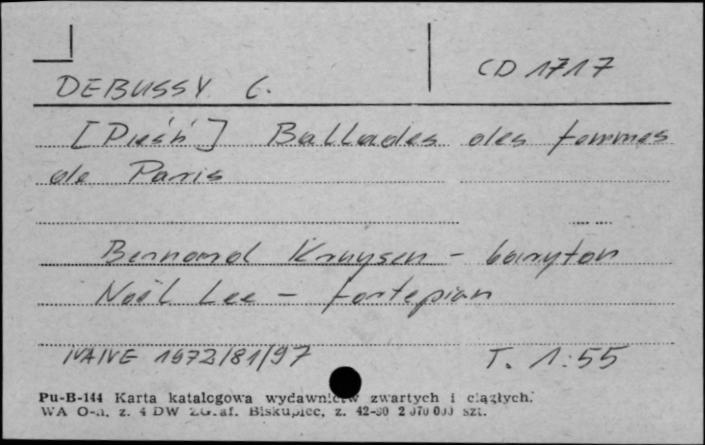 CD 1717
DEBUSSY C.
[Pieśń] Ballades des femmes
de Paris
Bernard Kruysen - baryton
Noël Lee - fortepian
NAIVE 1972/81/97 T. 1:55
Pu-B-144 Karta katalogowa wydawnictw zwartych i ciągłych.
WA O-n. z. 4 DW Zgraf. Biskupiec, z. 42-80 2 070 000 szt.